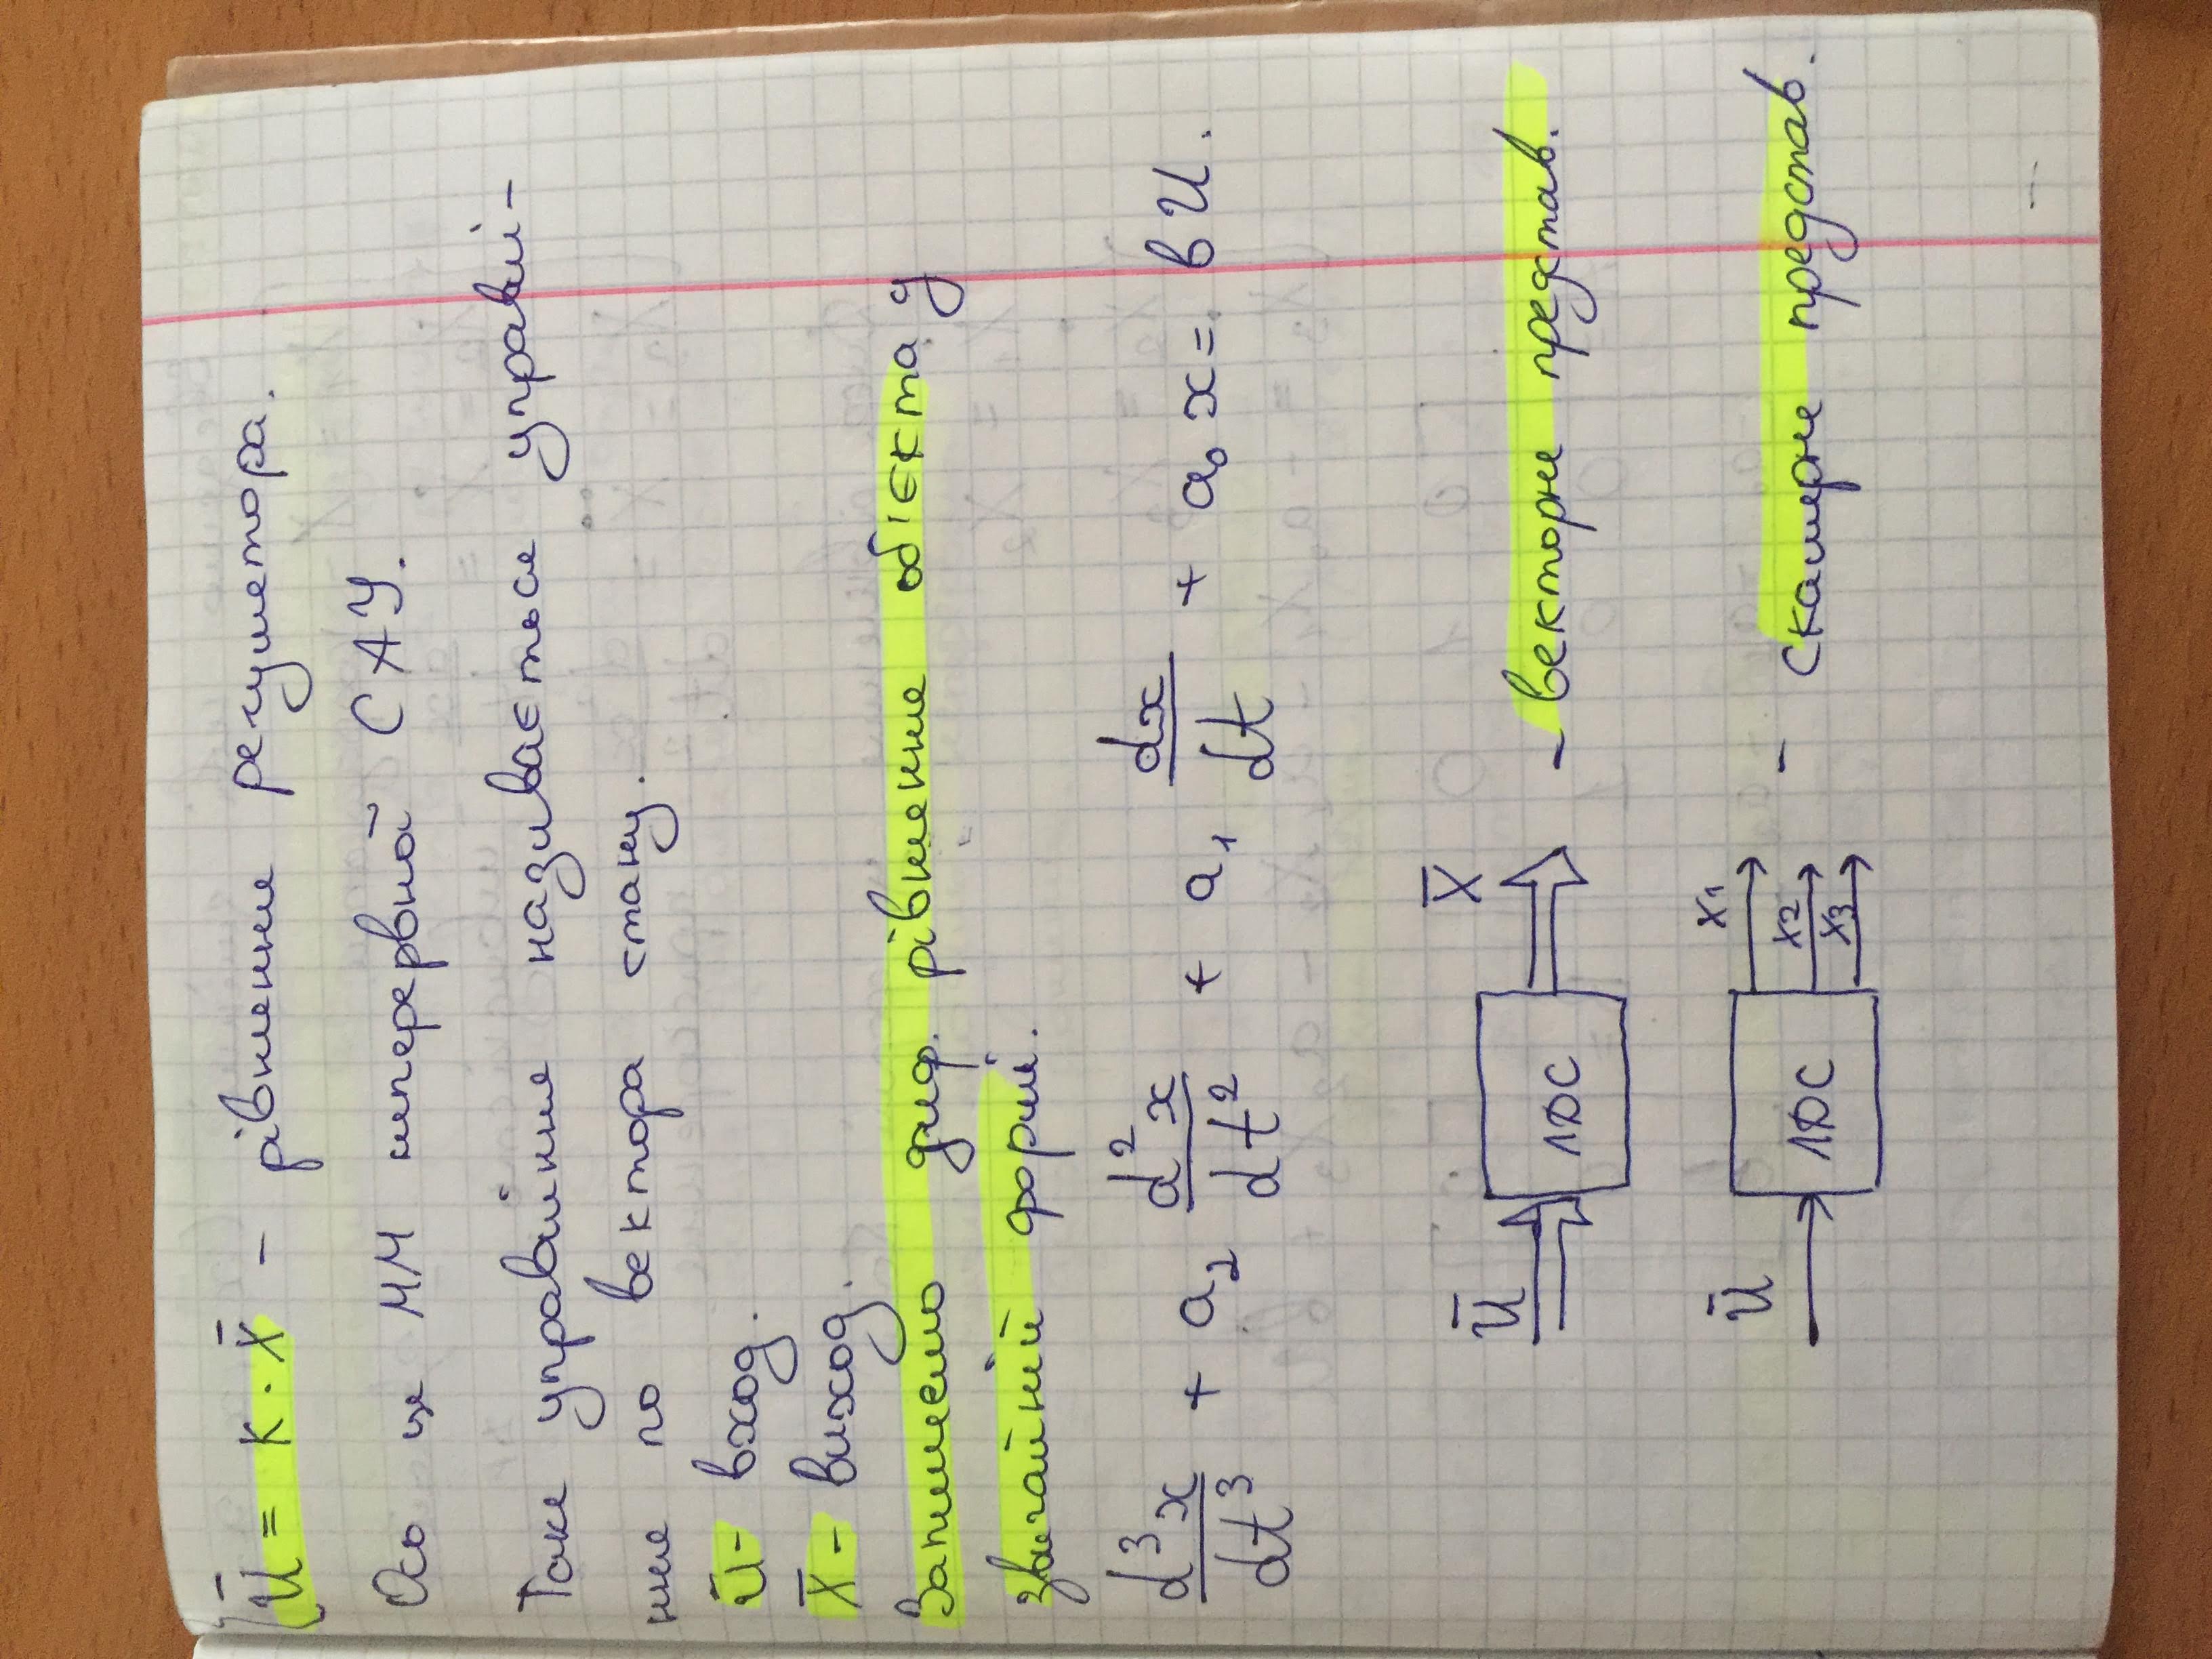 Ū = K · X̄ - рівняння регулятора.
Ось це ММ неперервної САУ.
Таке управління називається управлі-
ння по вектора стану.
Ū - вход.
X̄ - виход.
Запишемо диф. рівняння об'єкта у
звичайній формі.
d³x/dt³ + a₂ d²x/dt² + a₁ dx/dt + a₀ x = bU.
Ū ЛДС X̄ - векторне представ.
Ū ЛДС x1 x2 x3 - скалярне представ.